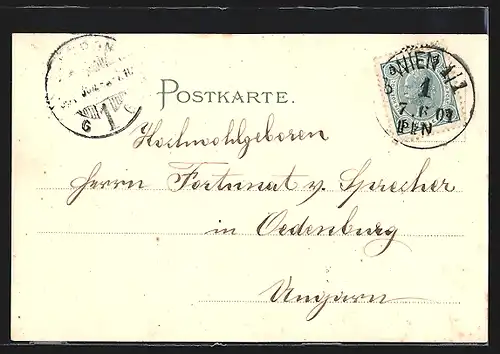 POSTKARTE.
WIEN 1/1
1
7.6 02
Hochwohlgeboren
Herrn Fortunat v. Sprecher
in Oedenburg
Ungarn